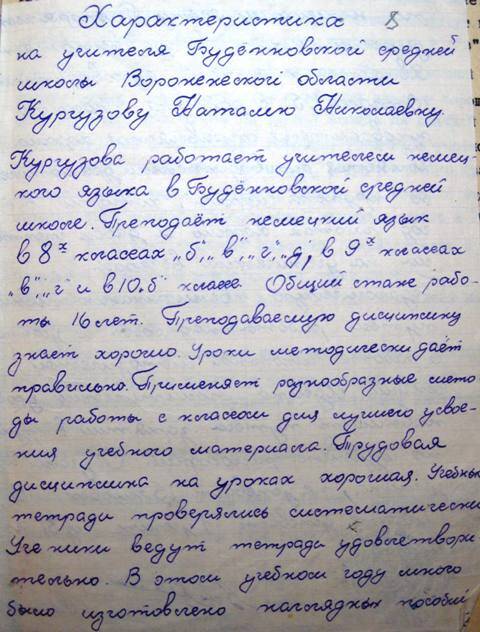 Характеристика 8
на учителя Будённовской средней
школы Воронежской области
Кургузову Наталию Николаевну.
Кургузова работает учителем немец-
кого языка в Будённовской средней
школе. Преподаёт немецкий язык
в 8х классах „б", „в", „г", „д", в 9х классах
„в", „г" и в 10 „б" классе. Общий стаж рабо-
ты 16 лет. Преподаваемую дисциплину
знает хорошо. Уроки методически даёт
правильно. Применяет разнообразные мето-
ды работы с классом для лучшего усвое-
ния учебного материала. Трудовая
дисциплина на уроках хорошая. Учебные
тетради проверялись систематически
Ученики ведут тетради удовлетвори
тельно. В этом учебном году много
было изготовлено наглядных пособий